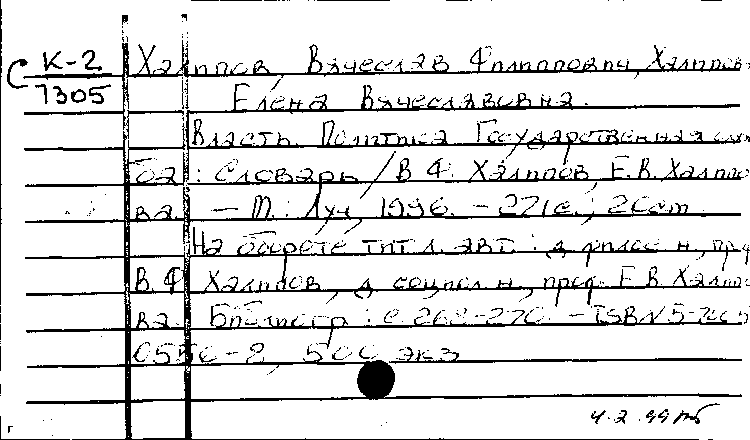 С К-2 Халипов, Вячеслав Филиппович, Халипов
7305 Елена Вячеславовна.
Власть. Политика. Государственная служ
ба: Словарь / В.Ф. Халипов, Е.В. Халипо
ва. – М.: Луч, 1996. – 271с.; 20см.
На обороте тит. л. авт.: д. филос. н., проф.
В.Ф. Халипов, д. социол. н., проф. Е.В. Халипо
ва. Библиогр.: с. 268-270. – ISBN 5-
0550-2, 500 экз
4.2.99